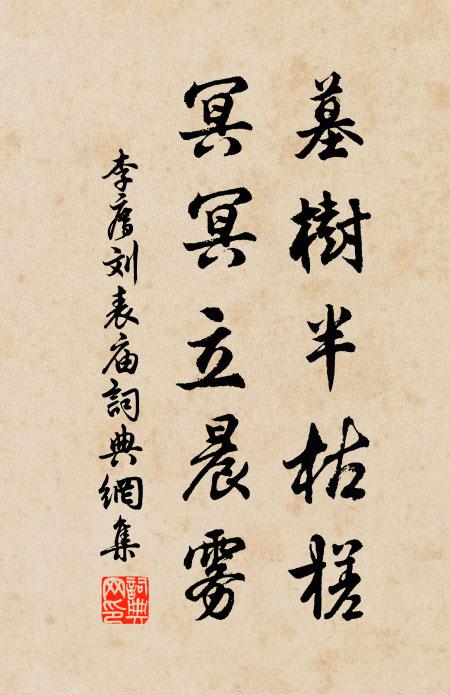 墓樹半枯槎
冥冥立晨雾
李廌刘表庙詞典網集
詞典
网印